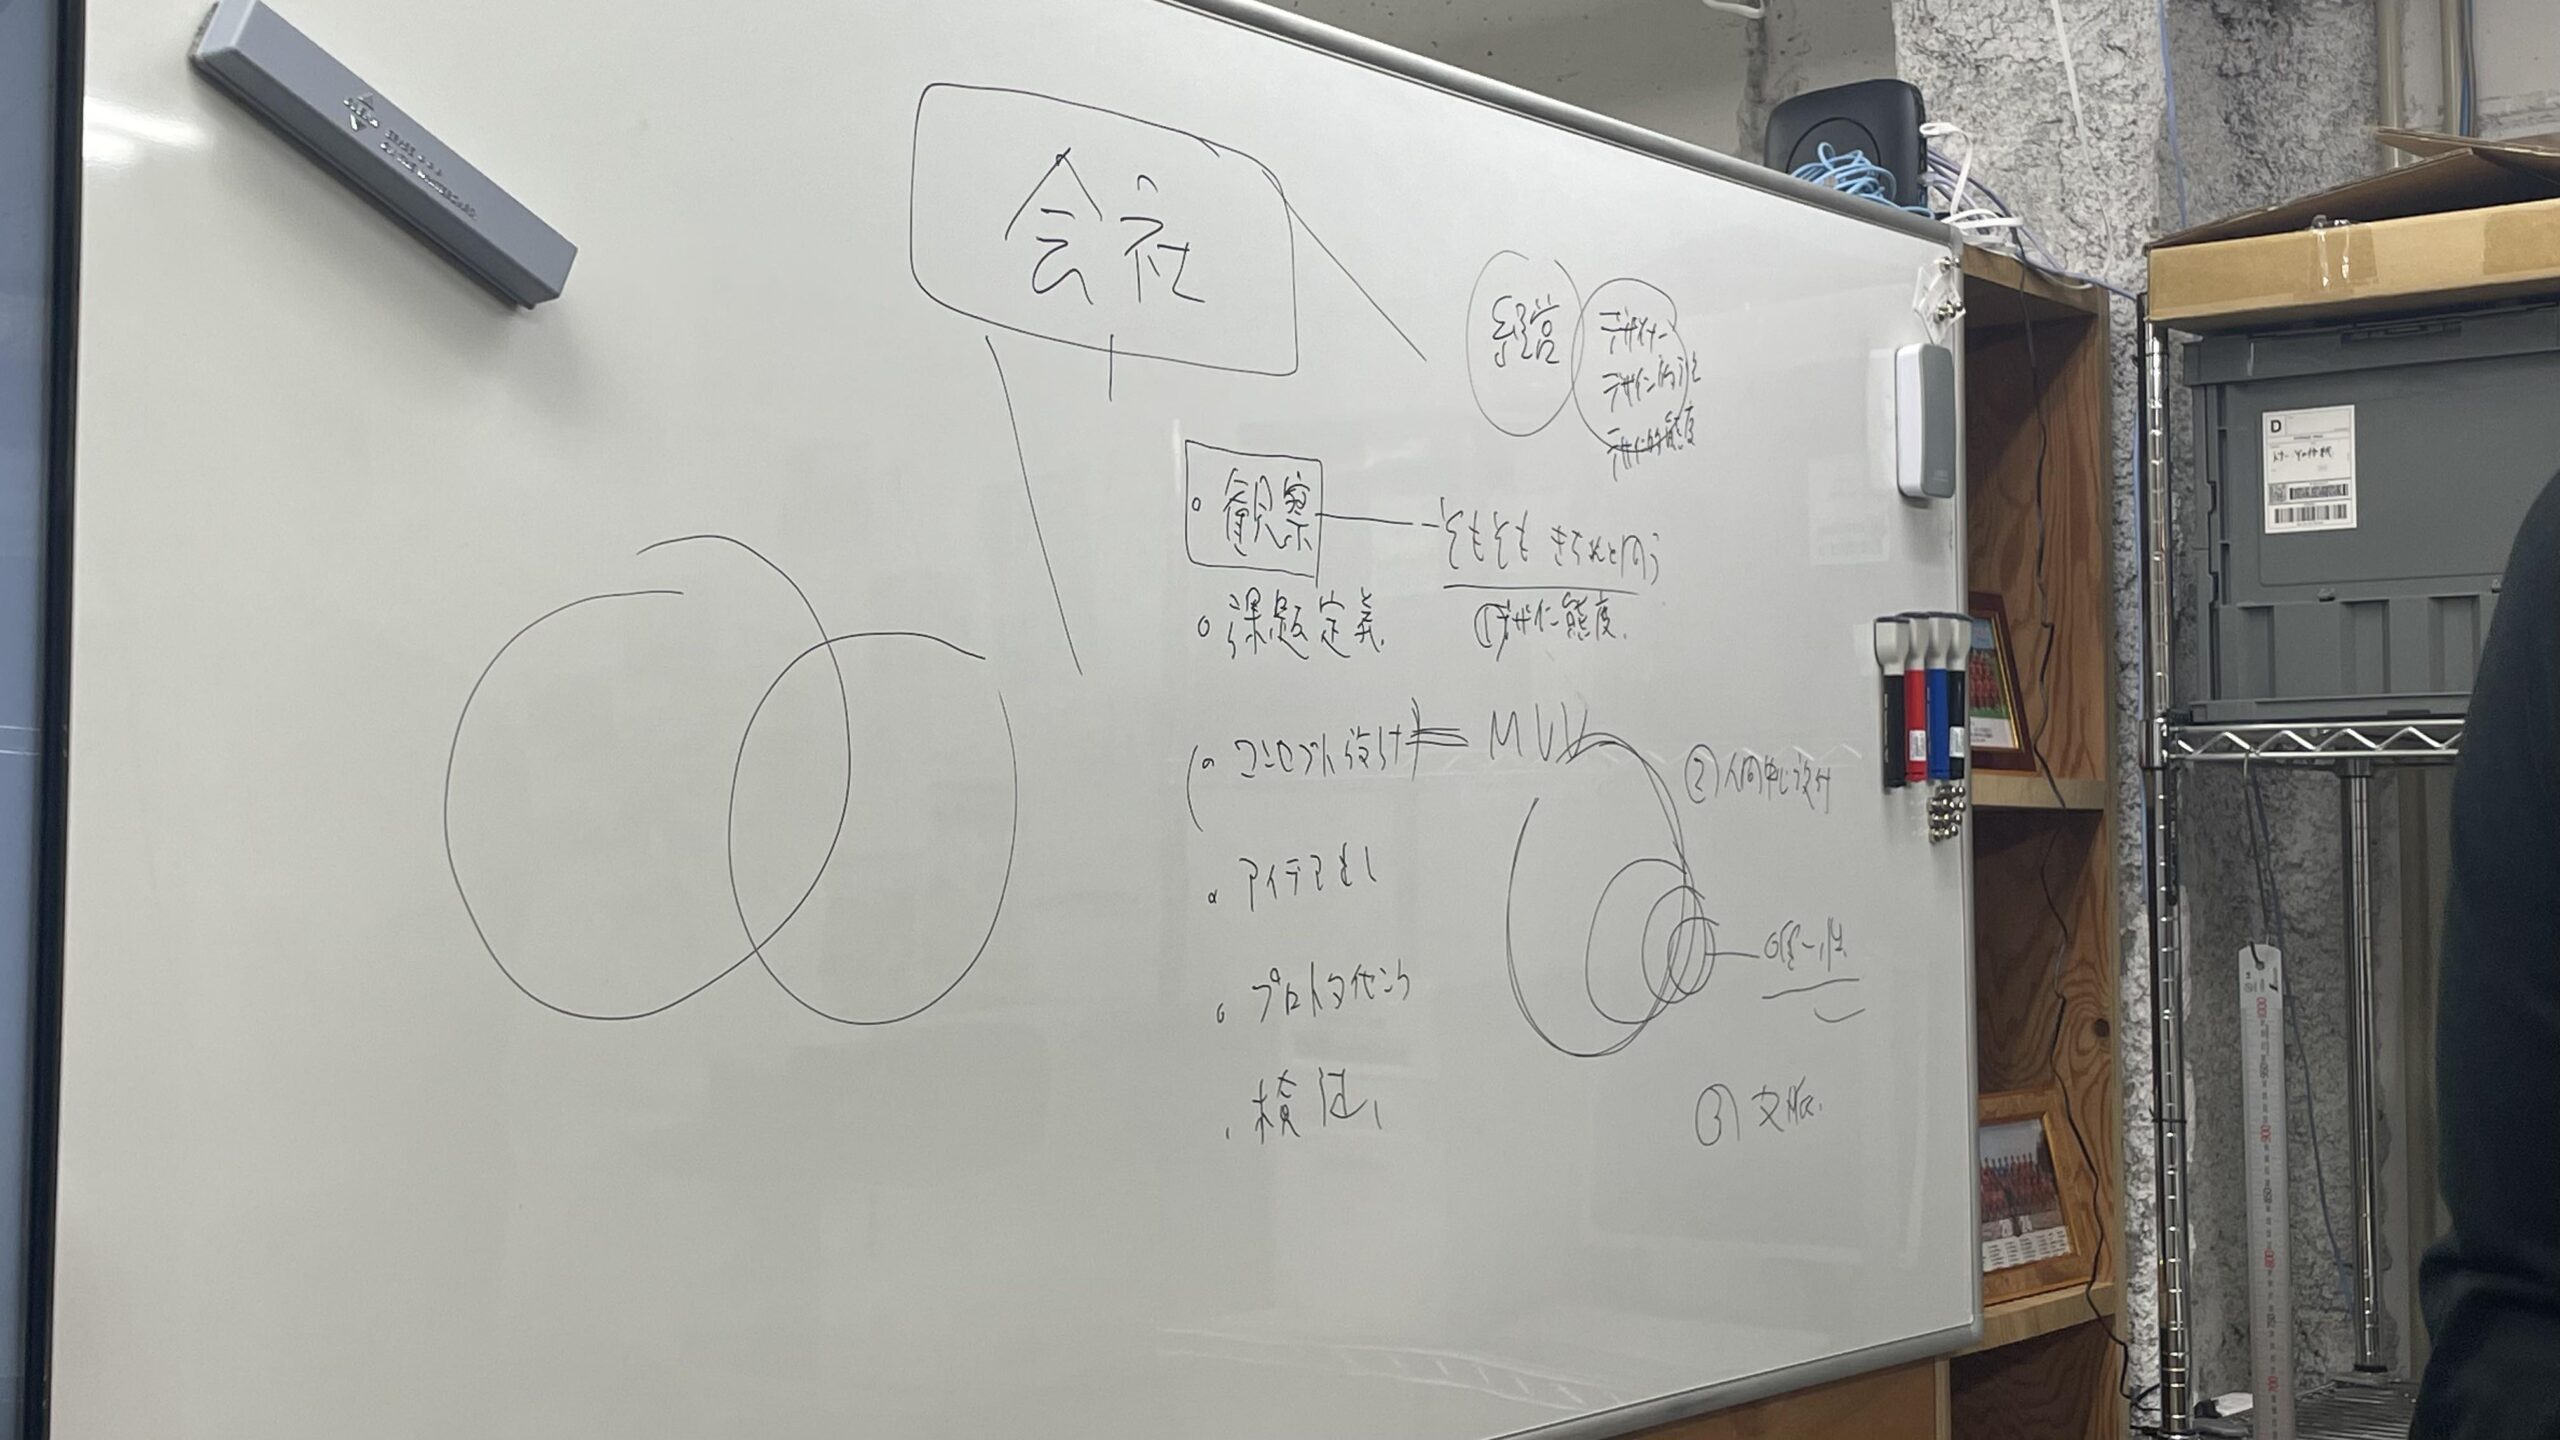 会社
経営
デザイナー
デザイン的
デザイン的態度
。観察
そもそも きちんと問う
。課題定義.
①デザイン態度.
。コンセプト設計
MVV
②人間中心設計
。アイデア出し
一性
。プロトタイピング
③文脈.
・検証
D